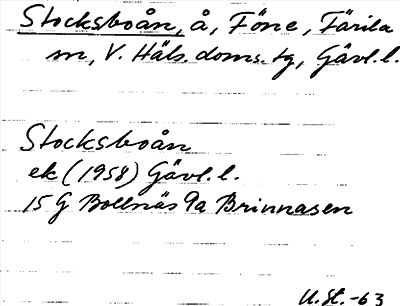 Stocksboån, å, Föne, Färila
sn, V. Häls. doms. tg, Gävl. l.
Stocksboån
ek (1958) Gävl. l.
15 G Bollnäs 9a Brinnasen
U. St. -63